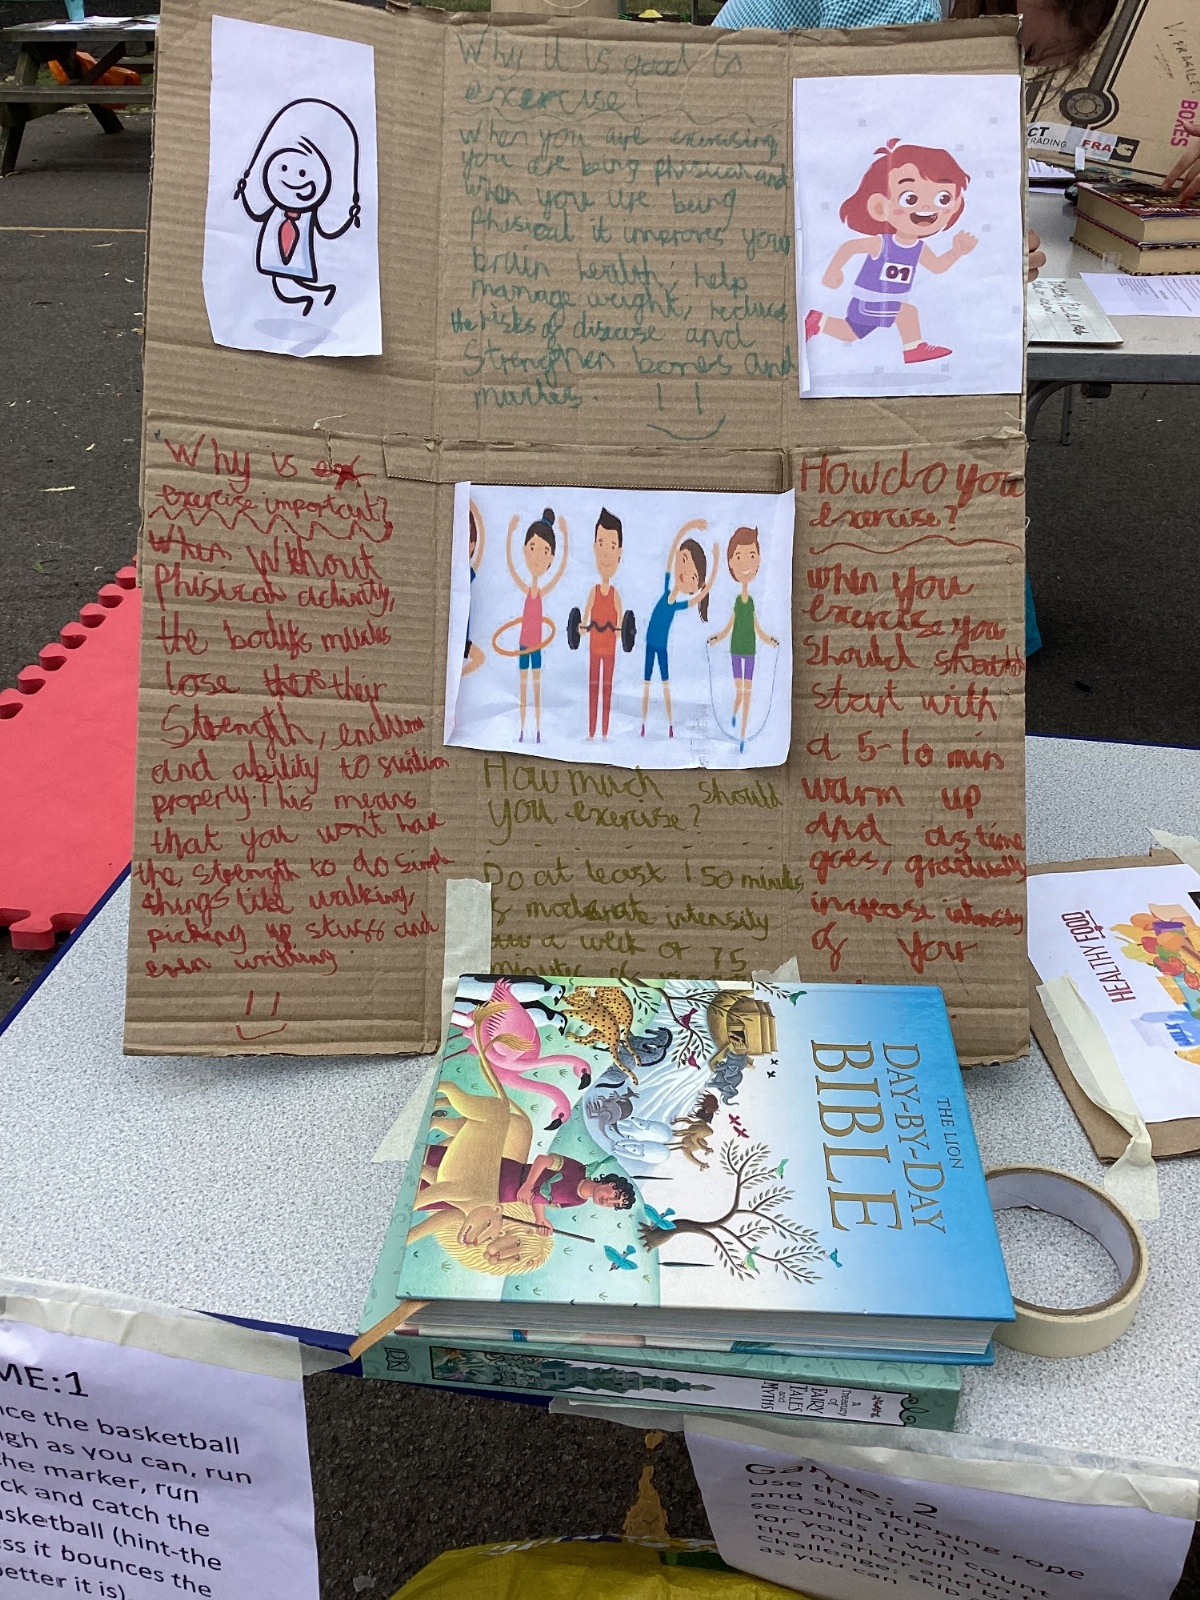 Why it is good to
exercise!
when you are exercising
you are being phisical and
when you are being
phisical it improves your
brain health, help
manage weight, reduce
the risks of disease and
strengthen bones and
01
CT
TRADING
FRA
BOXES
Why is
exercise important?
Without
phisical activity,
the body's
lose their
Strength,
and ability to
property. This means
that you won't have
the, strength to do simple
things like walking,
picking up stuff and
even writhing
How much should
you exercise?
Do at least 150 minutes
of moderate intensity
a week or 75
minutes of
How do you
exercise?
when you
exercise you
should
start with
a 5-10 min
warm up
and as time
goes, gradually
increase intensity
of your
HEALTHY FOOD
THE LION
DAY-BY-DAY
BIBLE
DK
A
Treasury
of
FAIRY
TALES
and
MYTHS
ME:1
nce the basketball
igh as you can, run
the marker, run
ck and catch the
asketball (hint-the
ss it bounces the
better it is)
Game: 2
use the skipping rope
and skip for 10
seconds (I will count
for you). Then run
the marker and
Challenge: skip
as you can